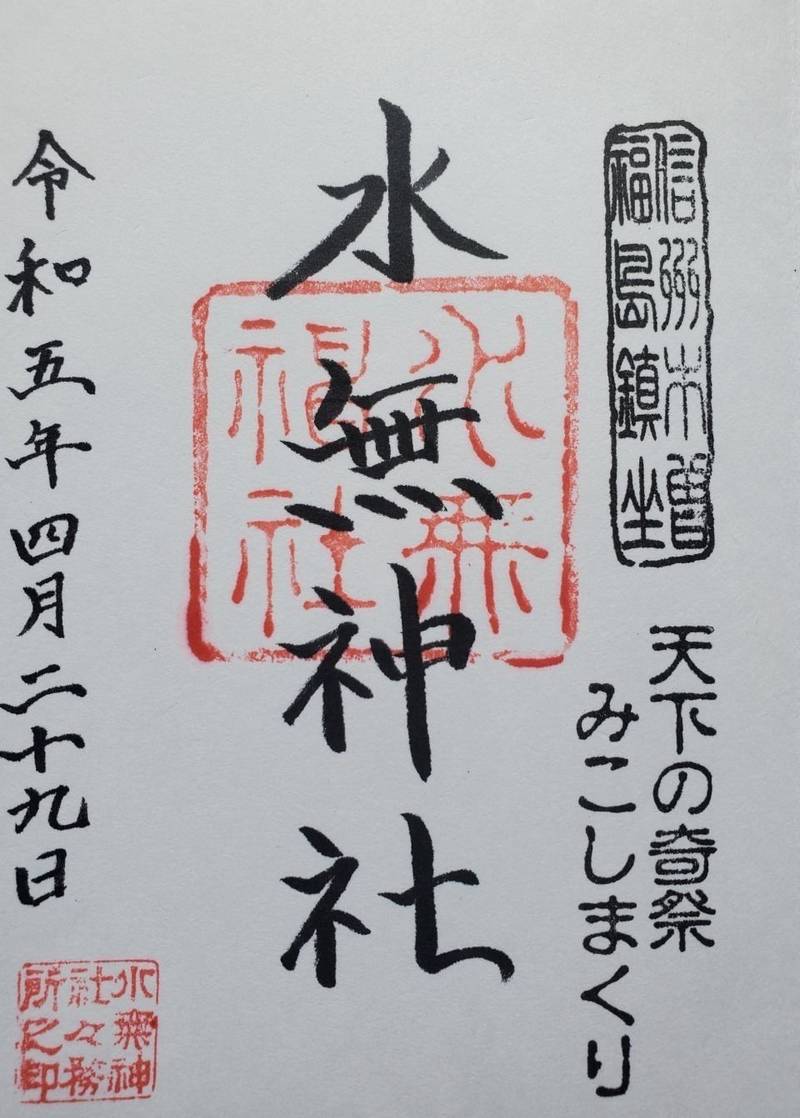 信州木曽
福島鎮坐
天下の奇祭
みこしまくり
水無神社
水無
神社
令和五年四月二十九日
水無神
社々務
所之印